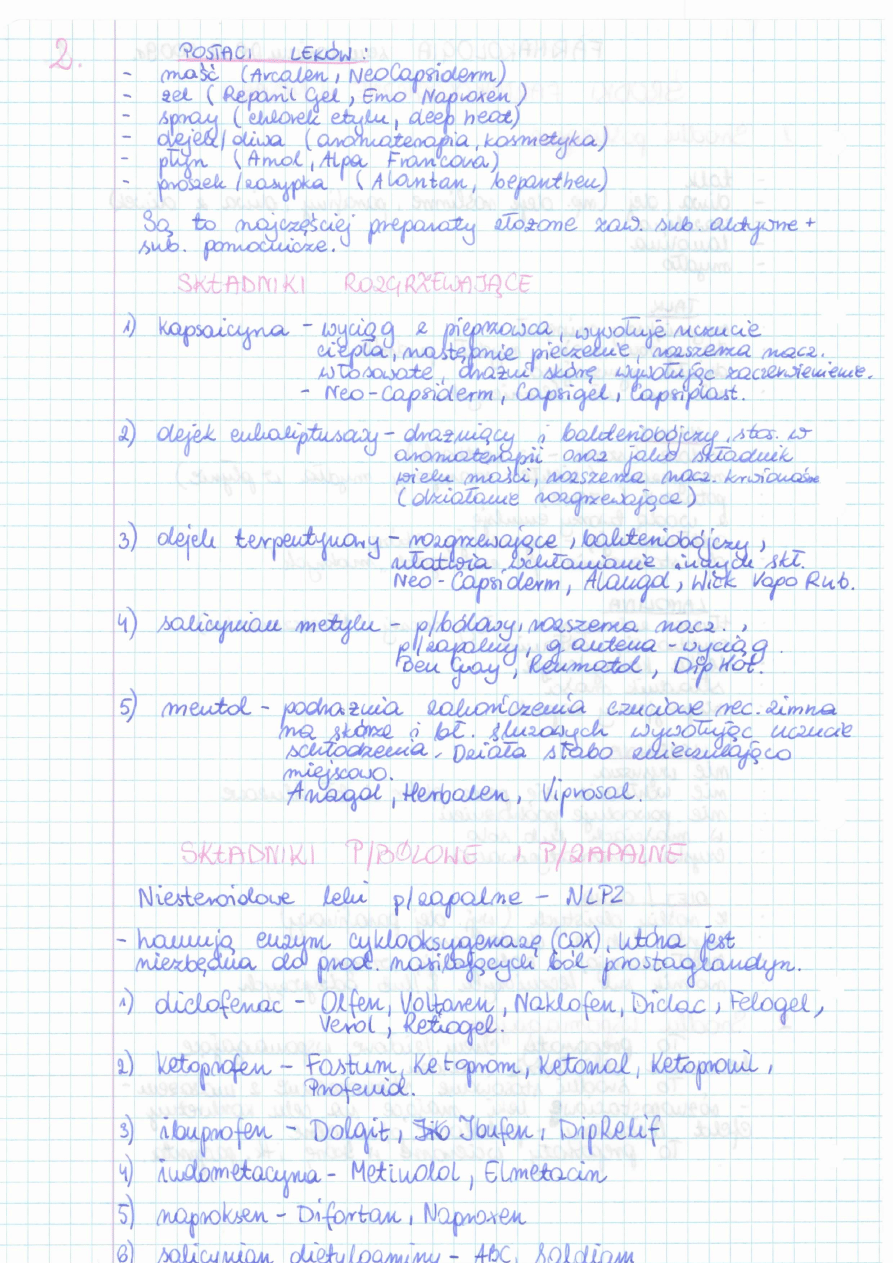 2.
POSTACI LEKÓW:
- maść (Arcalen, NeoCapsiderm)
- żel (Reparil Gel, Emo Naproxen)
- spray (chlorek etylu, deep heat)
- olejek/oliwa (aromaterapia, kosmetyka)
- płyn (Amol, Alpa Francova)
- proszek/zasypka (Alantan, bepanthen)
Są to najczęściej preparaty złożone zaw. sub. aktywne +
sub. pomocnicze.
SKŁADNIKI ROZGRZEWAJĄCE
1) kapsaicyna - wyciąg z pieprzowca wywołuje uczucie
ciepła, następnie pieczenie, rozszerza nacz.
włosowate, drażni skórę wywołując zaczerwienienie.
- Neo-Capsiderm, Capsigel, Capsiplast.
2) olejek eukaliptusowy - drażniący i bakteriobójczy, stos. w
aromaterapii oraz jako składnik
wielu maści, rozszerza nacz. krwionośne
(działanie rozgrzewające)
3) olejek terpentynowy - rozgrzewające, bakteriobójczy,
ułatwia wchłanianie innych skł.
Neo-Capsiderm, Alaugol, Wick Vapo Rub.
4) salicynian metylu - p/bólowy, rozszerza nacz.,
p/zapalny, gauteria - wyciąg.
Ben Gay, Reumatol, Dip Hot.
5) mentol - podrażnia zakończenia czuciowe rec. zimna
na skórze i bł. śluzowych wywołując uczucie
schłodzenia. Działa słabo znieczulająco
miejscowo.
Anagol, Herbalen, Viprosal.
SKŁADNIKI P/BÓLOWE I P/ZAPALNE
Niesteroidowe leki p/zapalne - NLPZ
- hamują enzym cyklooksygenazę (COX), która jest
niezbędna do prod. nasilających ból prostaglandyn.
1) diclofenac - Olfen, Voltaren, Naklofen, Diclac, Felogel,
Verol, Retiogel.
2) ketoprofen - Fastum, Ketoprom, Ketonal, Ketopronil,
Profenid.
3) ibuprofen - Dolgit, Ibufen, DipRelif
4) indometacyna - Metindol, Elmetacin
5) naproksen - Difortan, Naproxen
6) salicynian dietyloaminy - ABC, Saldiam